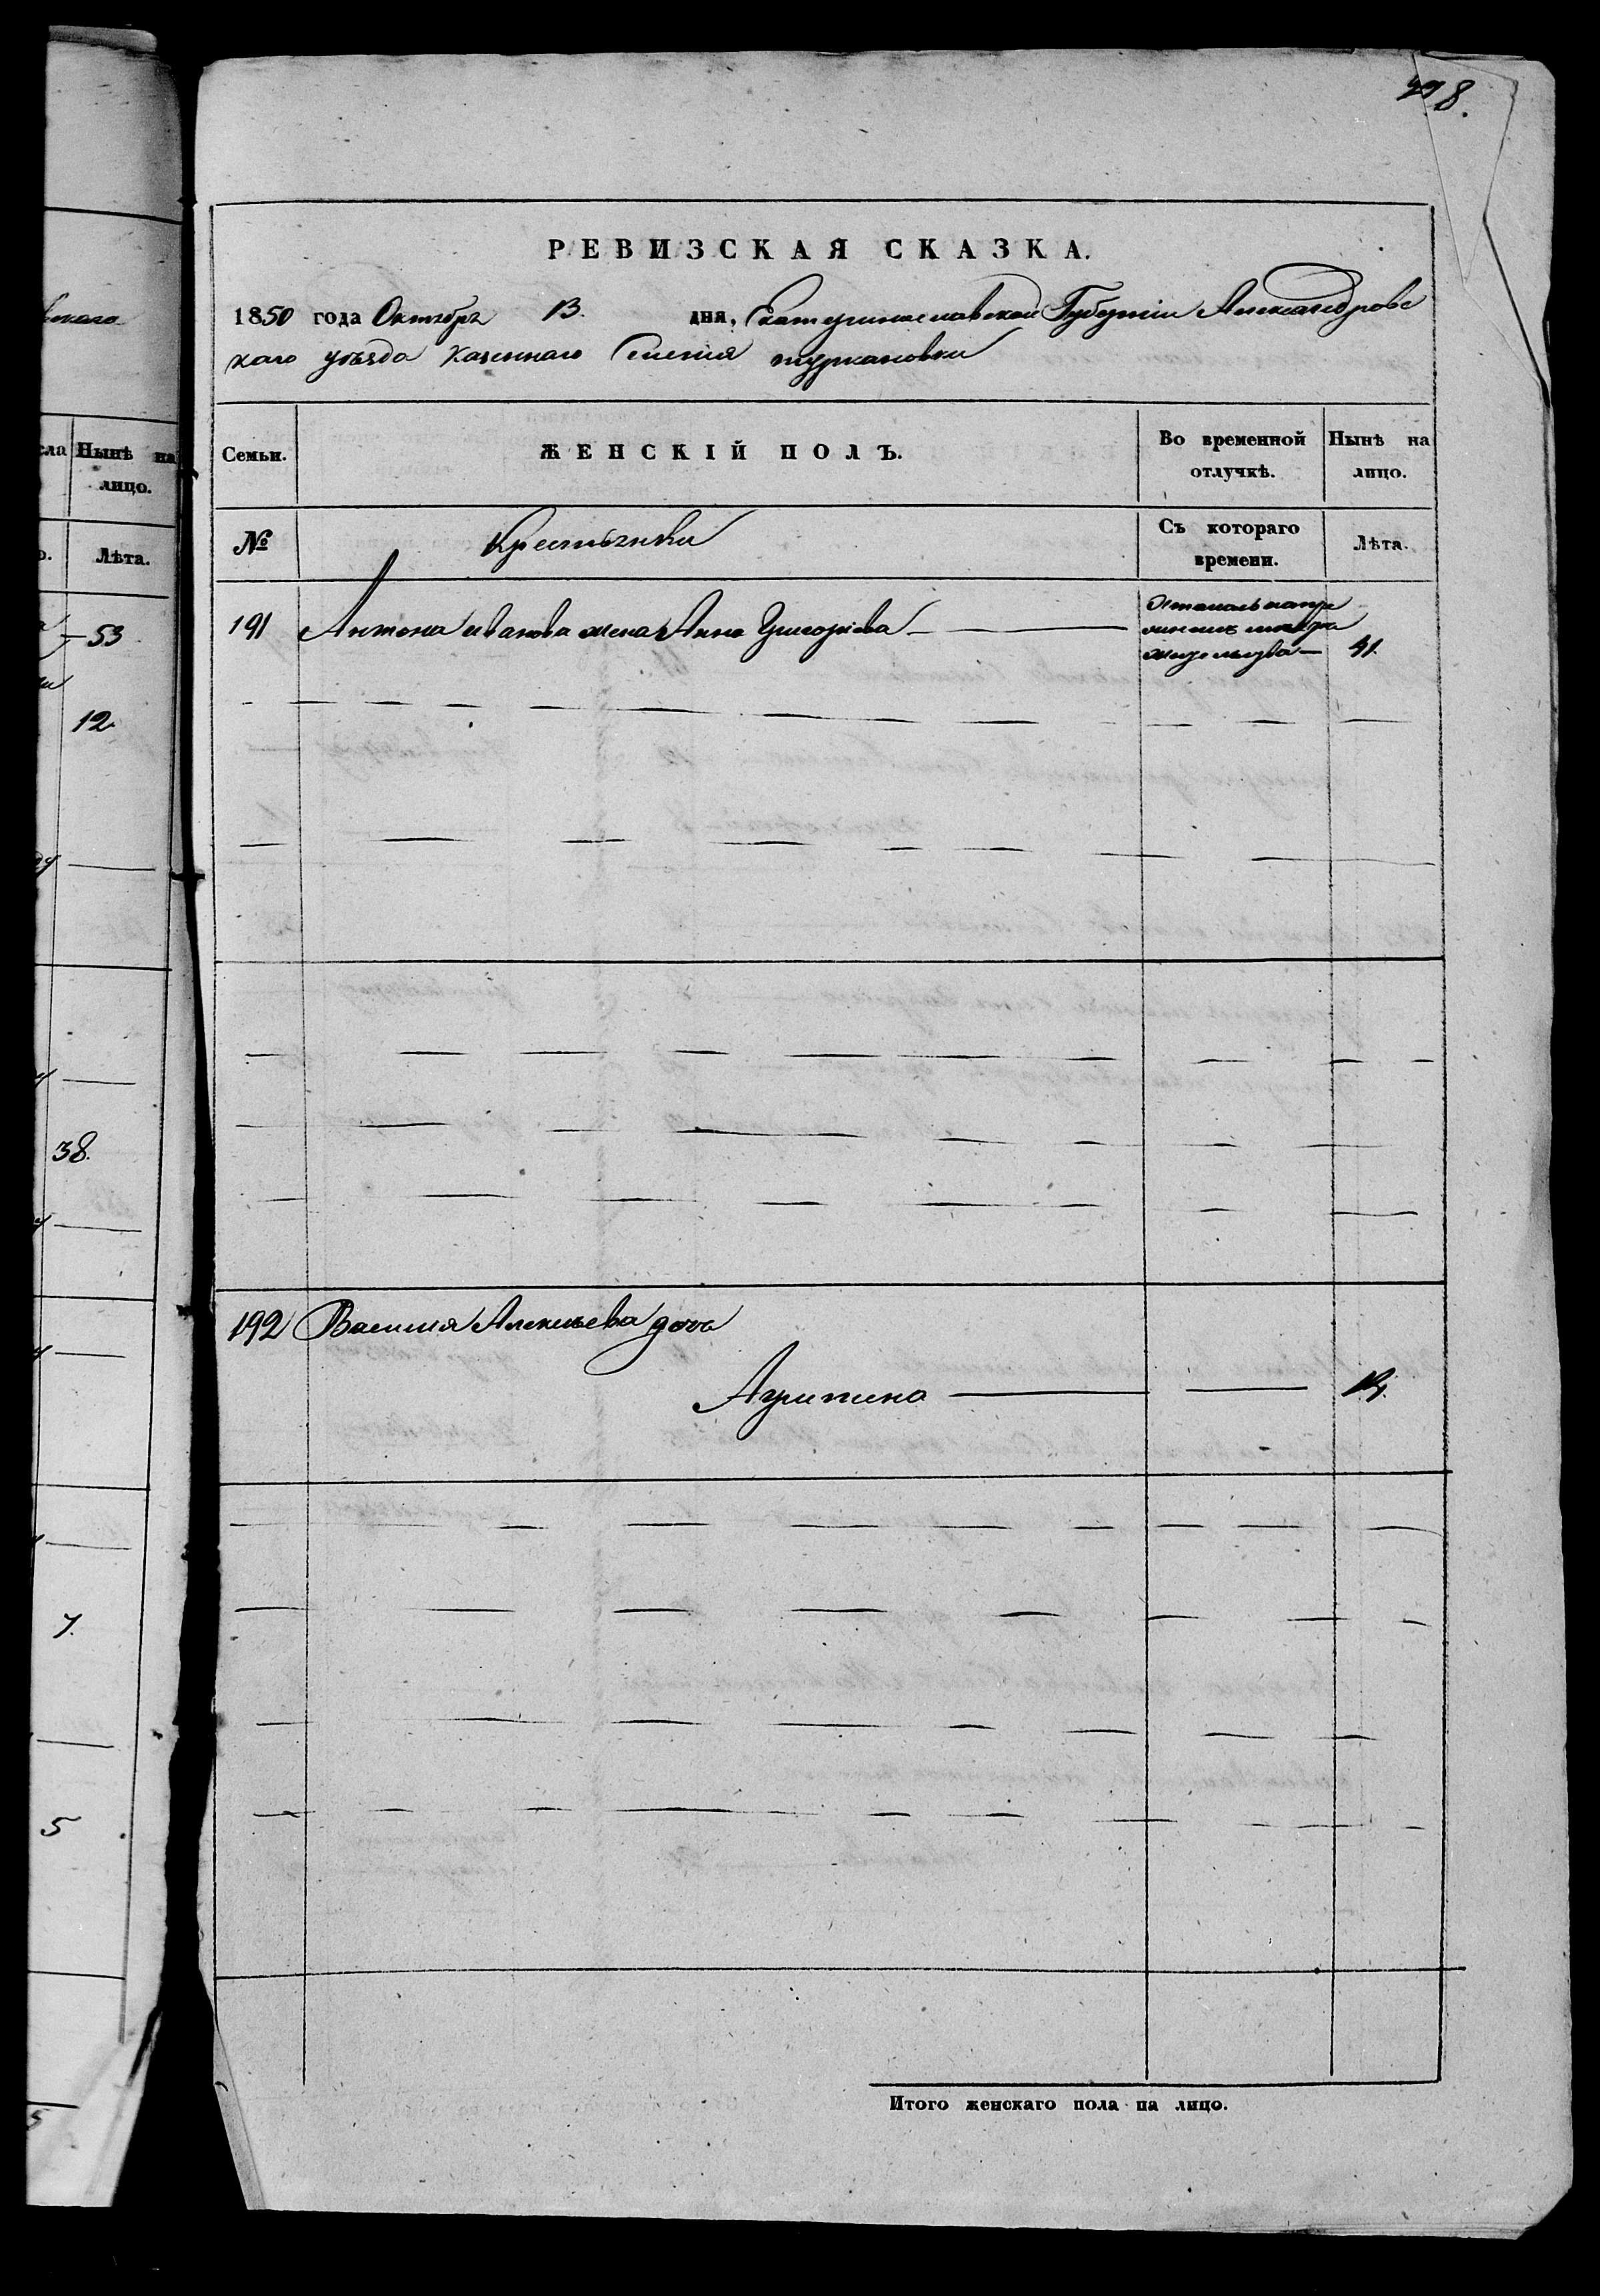 298.
вскаго
сла Нынѣ на
лицо.
Лѣта.
53
12.
38.
7.
5
5
РЕВИЗСКАЯ СКАЗКА.
1850 года Октября 13. дня, Екатеринославской Губерніи Александровс
каго уѣзда Казеннаго Селенія туркановки
Семьи. ЖЕНСКІЙ ПОЛЪ. Во временной отлучкѣ. Нынѣ на лицо.
№ Крестьянки Съ котораго времени. Лѣта.
191 Антона иванова жена Анна Григорьева
41.
192 Василия Алексѣева дочь
Агрипина 14.
Итого женскаго пола на лицо.